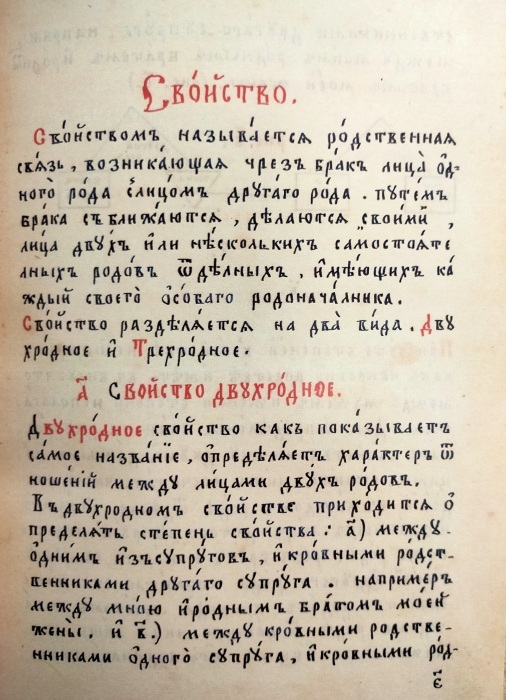 Сво́йство.
Сво́йствомъ называ́ется ро́дственная
свѧ́зь, возника́ющая чрезъ бра́къ лица̀ ѻ҆д-
ного̀ ро́да сли́цомъ друга́го ро́да. путе́мъ
бра́ка съближа́ются, дѣ́лаются „свои́ми̋,
ли́ца двꙋ́хъ и҆ли нѣ́сколькихъ самостоѧ́те
лныхъ родо́въ ѿдѣ́лныхъ, и҆мѣ́ющихъ ка́
ждый своего̀ ѻ҆со́баго родонача́лника.
Сво́йство раздѣлѧ́ется на два̀ ви́да. Двꙋ
хро́дное и҆ Трехро́дное.
а҃ свойство двꙋхро́дное.
Двꙋхро́дное сво́йство ка́къ пока́зываетъ
са́мое назва́нїе, ѻ҆предѣлѧ́етъ хара́ктеръ ѿ
ноше́нїй ме́ждꙋ ли́цами двꙋ́хъ ро́довъ.
Въ двꙋхродномъ сво́йствѣ прихо́дится ѻ҆
пределѧ́ть сте́пень сво́йства: а҃) ме́ждꙋ.
ѻ҆дни́мъ и҆зъ сꙋпрꙋговъ, и҆ кро́вными ро́дст-
венниками дрꙋга́го сꙋпрꙋ́га. наприме́ръ
ме́ждꙋ мно́ю и҆ ро́днымъ бра́томъ мое́й
жены̀. и҆ в҃.) ме́ждꙋ кро́вными родстве-
нниками ѻ҆дного̀ сꙋпрꙋ́га, и҆ кро́вными ро́д-
є҃